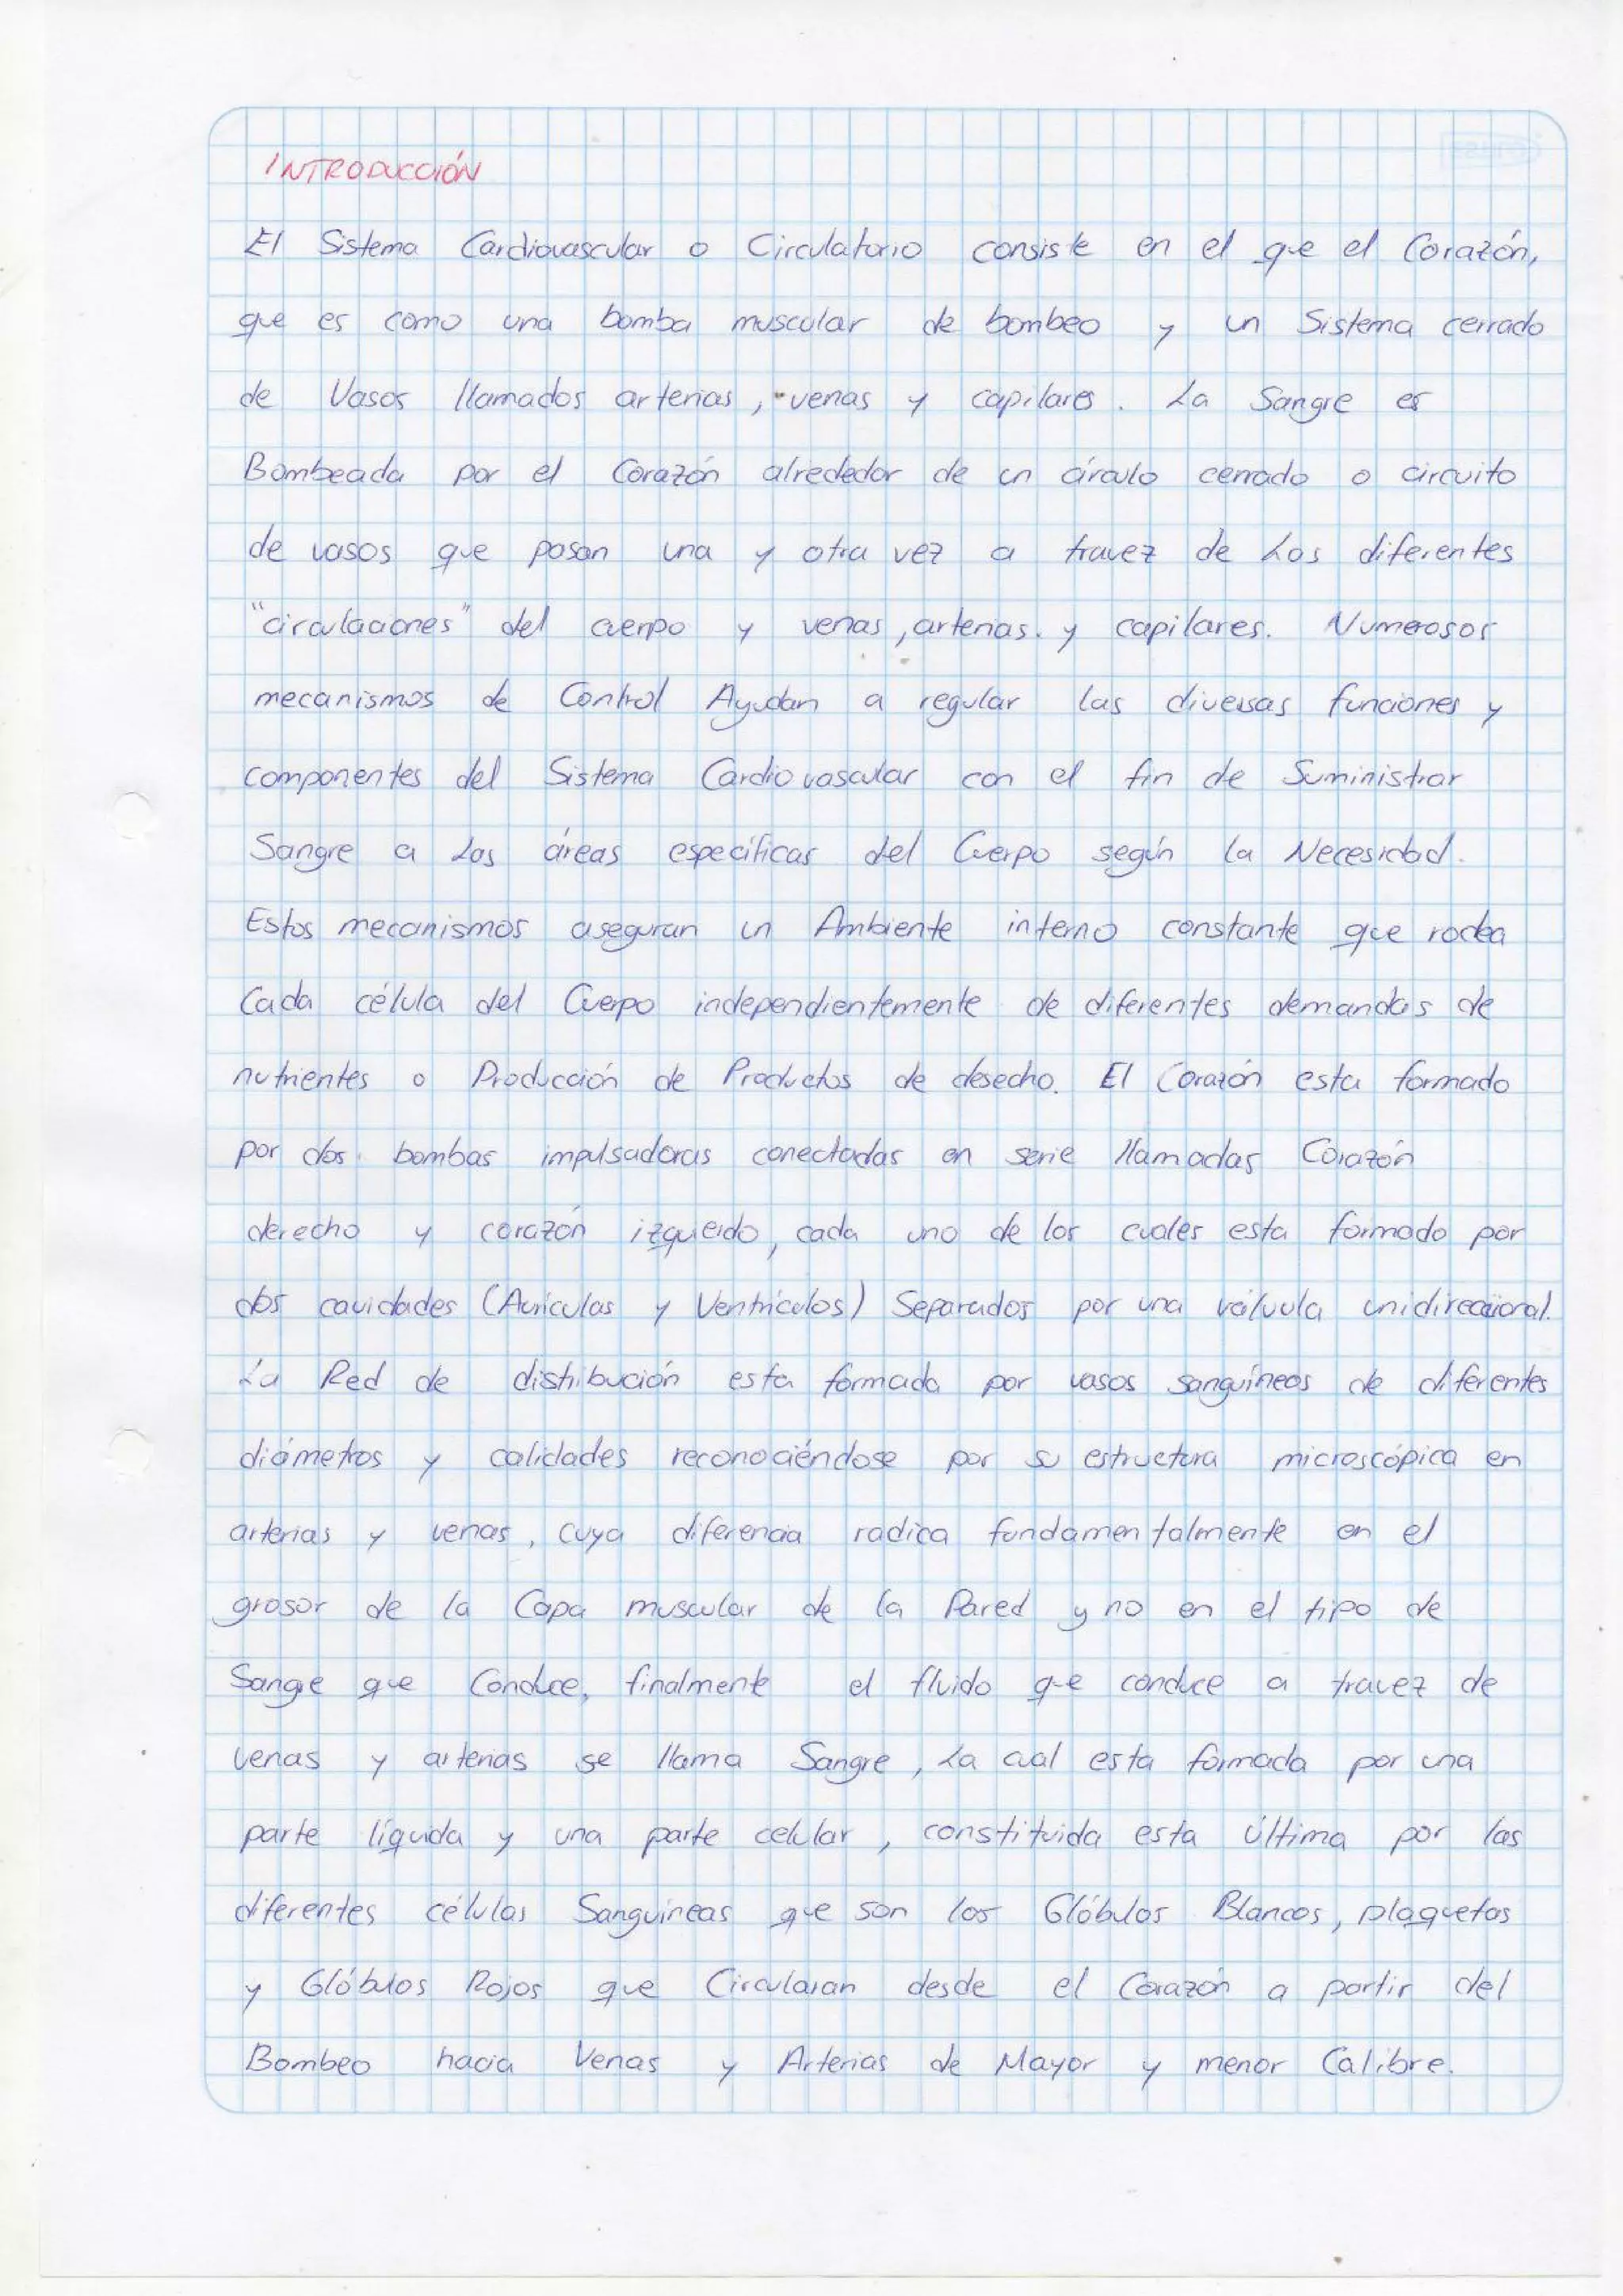 INTRODUCCIÓN
El Sistema Cardiovascular o Circulatorio consiste en el que el Corazón,
que es como una bomba muscular de bombeo y un Sistema cerrado
de Vasos llamados arterias, venas y capilares. La Sangre es
Bombeada por el Corazón alrededor de un círculo cerrado o circuito
de vasos que pasan una y otra vez a travez de Los diferentes
"circulaciones" del cuerpo y venas, arterias. y capilares. Numerosos
mecanismos de Control Ayudan a regular las diversas funciones y
componentes del Sistema Cardiovascular con el fin de Suministrar
Sangre a Las áreas específicas del Cuerpo según la Necesidad.
Estos mecanismos aseguran un Ambiente interno constante que rodea
Cada célula del Cuerpo independientemente de diferentes demandas de
nutrientes o Producción de Productos de desecho. El Corazón esta formado
por dos bombas impulsadoras conectadas en serie llamadas Corazón
derecho y corazón izquierdo, cada uno de los cuales esta formado por
dos cavidades (Aurículas y Ventrículos) Separados por una válvula unidireccional.
La Red de distribución esta formada por vasos sanguíneos de diferentes
diámetros y calidades reconociéndose por su estructura microscópica en
arterias y venas, cuya diferencia radica fundamentalmente en el
grosor de la Capa muscular de la Pared y no en el tipo de
Sangre que Conduce, finalmente el fluido que conduce a travez de
venas y arterias se llama Sangre, La cual esta formada por una
parte líquida y una parte celular, constituida esta última por las
diferentes células Sanguíneas que son los Glóbulos Blancos, plaquetas
y Glóbulos Rojos que Circularan desde el Corazón a partir del
Bombeo hacia Venas y Arterias de Mayor y menor Calibre.